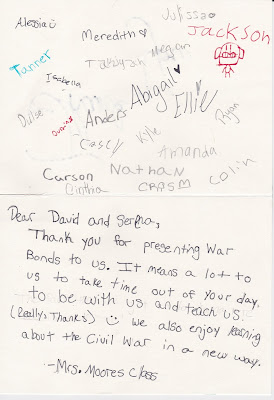 Alessia
Meredith
Jackson
Tanner
Isabella
Megan
Abigail
Elliu
Anders
Casey
Kyle
Ryan
Amanda
Carson
Nathan
Colin
Cinthia
Dear David and Serena,
Thank you for presenting War
Bonds to us. It means a lot to
us to take time out of your day
to be with us and teach us.
(Really, Thanks) we also enjoy learning
about the Civil War in a new way.
-Mrs. Moores Class